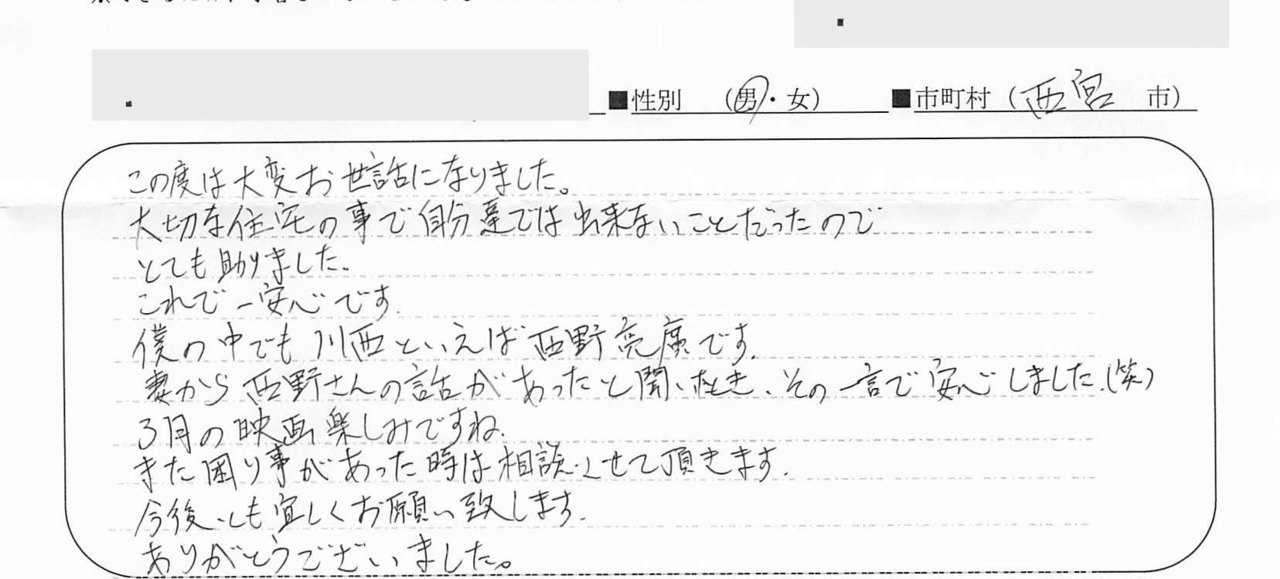 ■性別 （男・女） ■市町村（西宮 市）
この度は大変お世話になりました。
大切な住宅の事で自分達では出来ないことだったので
とても助りました。
これで一安心です。
僕の中でも川西といえば西野亮廣です。
妻から西野さんの話があったと聞いたとき、その一言で安心しました。(笑)
3月の映画楽しみですね。
また困り事があった時は相談させて頂きます。
今後とも宜しくお願い致します。
ありがとうございました。